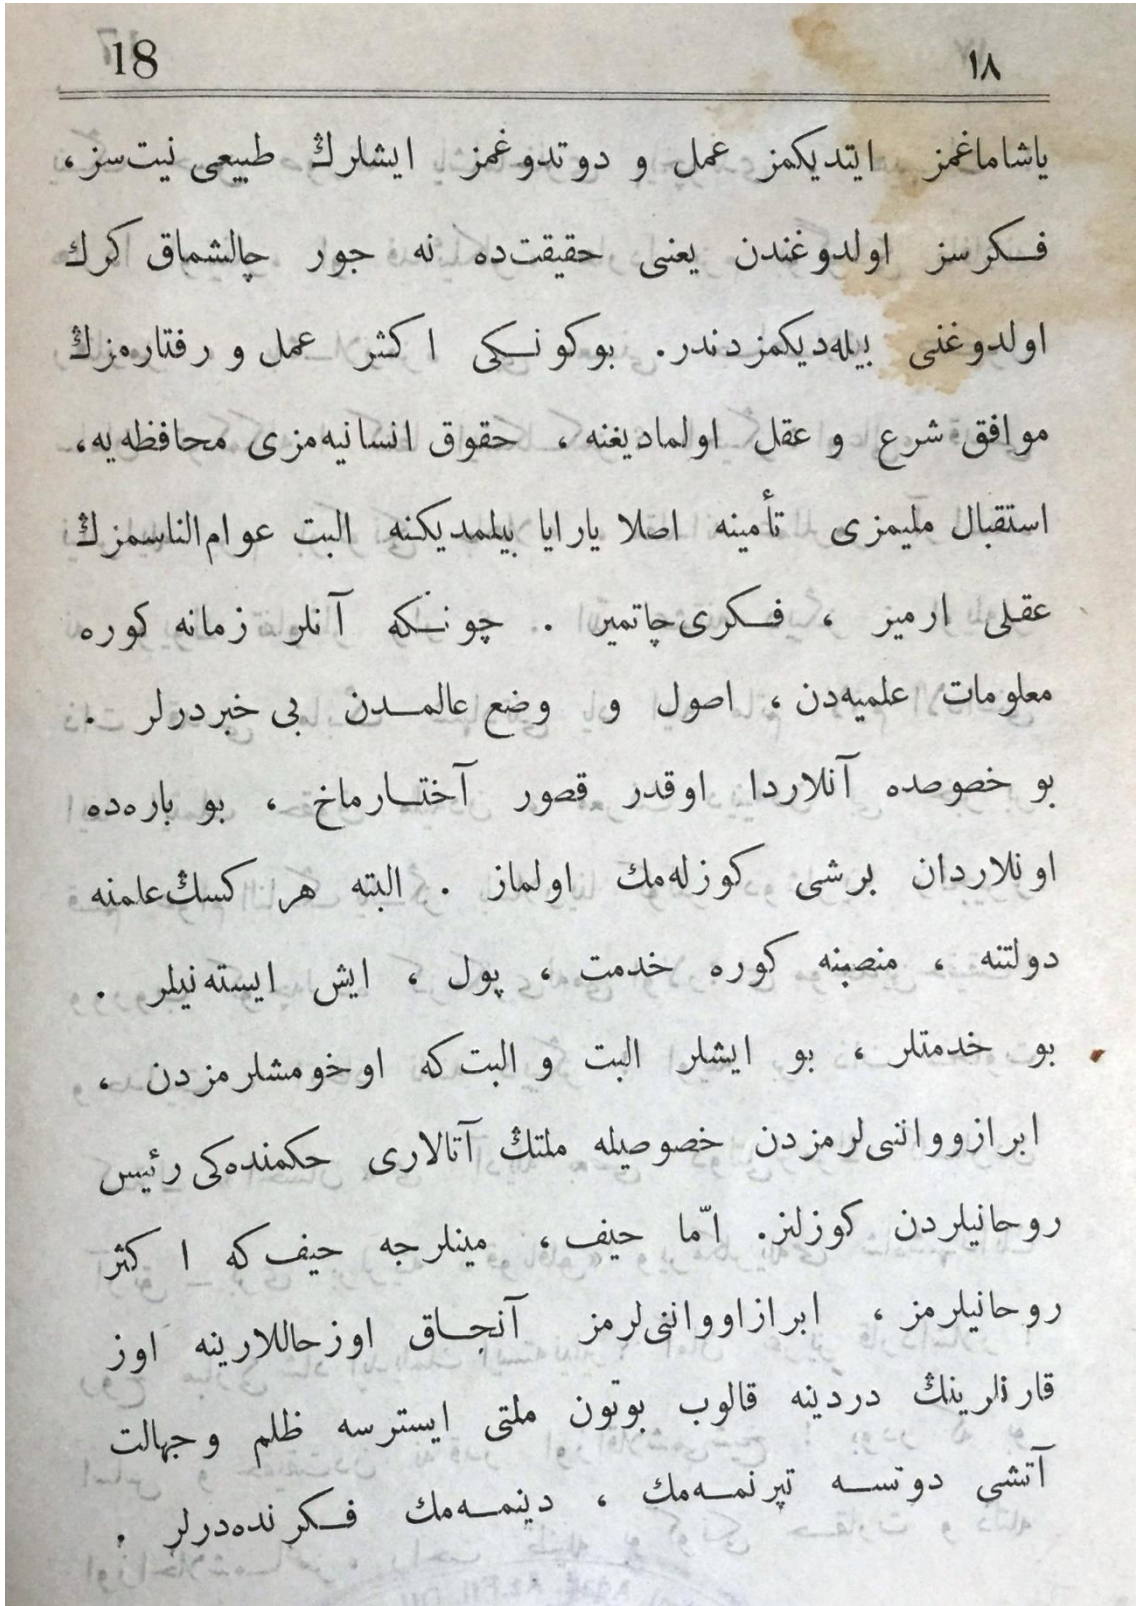 18 ١٨
ياشاماغمز ايتديكمز عمل و دوتدوغمز ايشلرڭ طبيعى نيت‌سز،
فـكرسز اولدوغندن يعنى حقيقت‌ده نه جور چالشماق كرك
اولدوغنى بيله‌ديكمزدندر. بوكونـكى اكثر عمل و رفتارمزڭ
موافق شرع و عقل اولماديغنه ، حقوق انسانيه‌مزى محافظه‌يه،
استقبال مليمزى تأمينه اصلا يارايا بيلمديكنه البت عوام‌الناسمزڭ
عقلى ارميز ، فـكرى‌چاتمير . چونـكه آنلر زمانه كوره
معلومات علميه‌دن ، اصول و وضع عالمـدن بى خبردرلر .
بو خصوصده آنلاردا اوقدر قصور آختـارماخ ، بو باره‌ده
اونلاردان برشى كوزله‌مك اولماز . البته هر كسڭ‌علمنه
دولتنه ، منصبنه كوره خدمت ، پول ، ايش ايسته‌نيلر .
بو خدمتلر ، بو ايشلر البت و البت‌كه اوخومشلرمزدن ،
ابرازوواننى‌لرمزدن خصوصيله ملتڭ آتالارى حكمنده‌كى رئيس
روحانيلردن كوزلنز. امّا حيف ، مينلرجه حيف‌كه اكثر
روحانيلرمز ، ابرازاوواننى‌لرمز آنجـاق اوزحاللارينه اوز
قارنلرينڭ دردينه قالوب بوتون ملتى ايسترسه ظلم و جهالت
آتشى دوتسـه تپرنمـه‌مك ، دينمـه‌مك فـكرنده‌درلر .